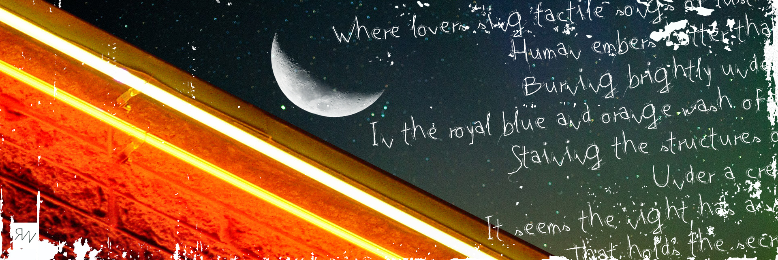 where lovers sing tactile songs
Human embers
Burning brightly
In the royal blue and orange wash of
Staining the structures
Under a
It seems the night has
That holds the